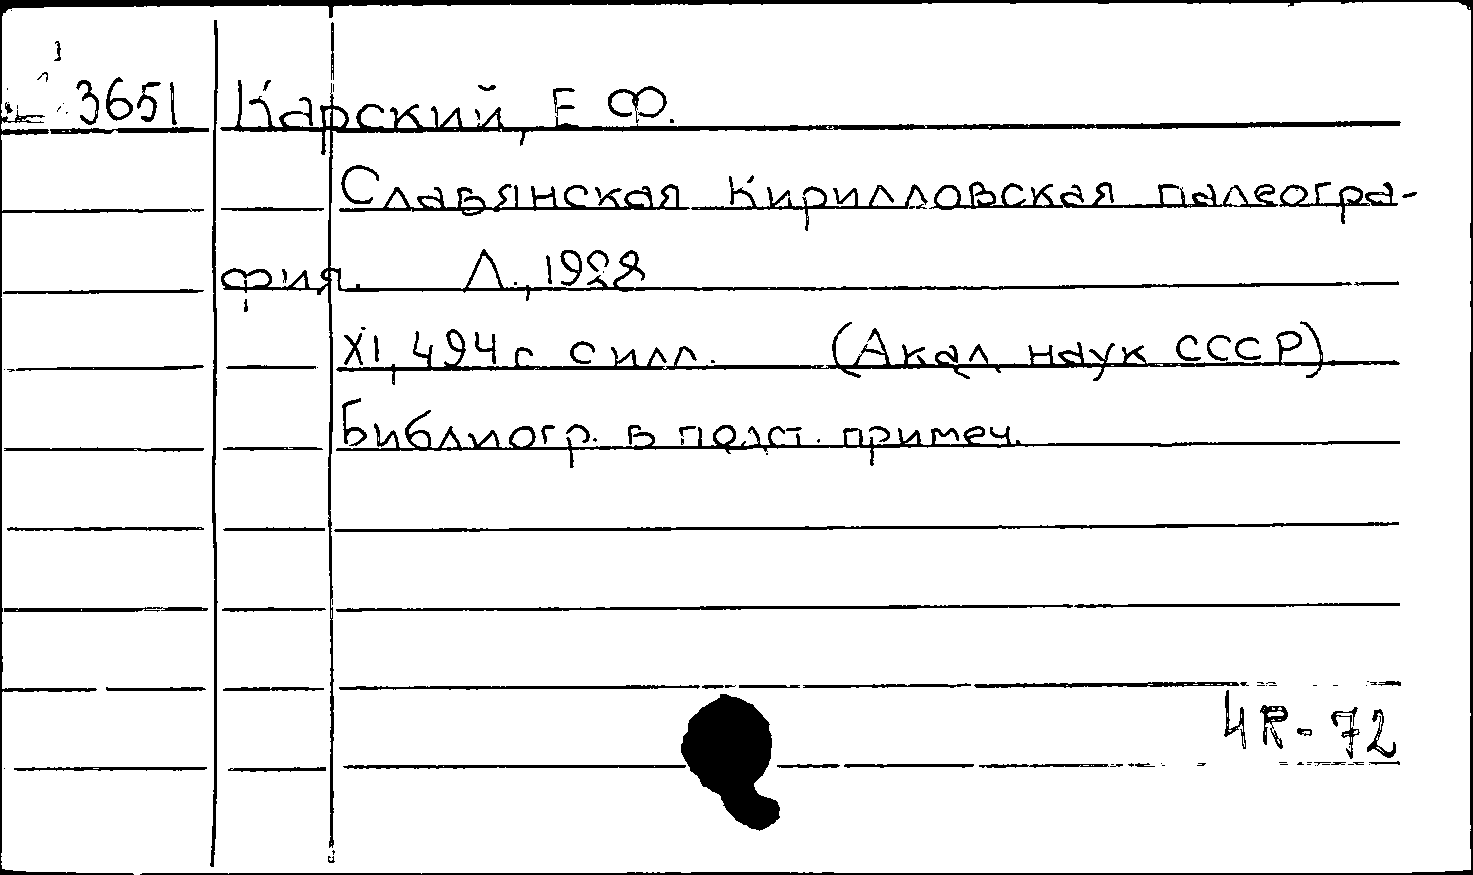 3651 Карский, Е Ф.
Славянская Кирилловская палеогра-
фия. Л., 1928
XI, 494 с с илл. (Акад наук СССР)
Библиогр. в подст. примеч.
4R-72